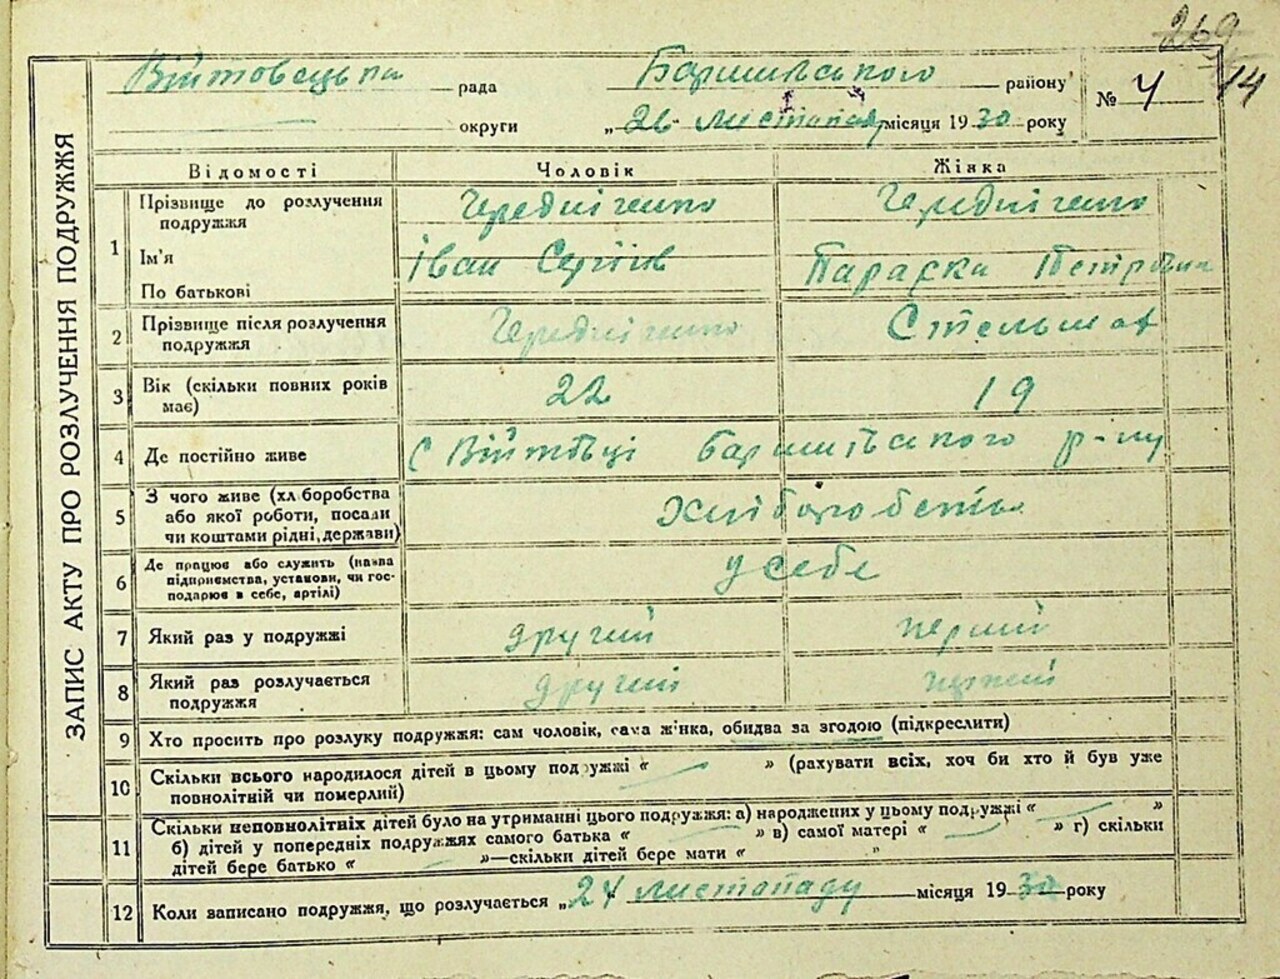 269
14
Війтовецька рада Баришівського району
№ 4
округи „26" листопада місяця 1930 року
ЗАПИС АКТУ ПРО РОЗЛУЧЕННЯ ПОДРУЖЖЯ
Відомості Чоловік Жінка
1 Прізвище до розлучення подружжя Чередніченко Чередніченко
Ім'я Іван Сергіїв Параска Петрівна
По батькові
2 Прізвище після розлучення подружжя Чередніченко Стельмах
3 Вік (скільки повних років має) 22 19
4 Де постійно живе с Війтовці Баришівського р-ну
5 З чого живе (хліборобства
або якої роботи, посади
чи коштами рідні, держави)
Хліборобство
6 Де працює або служить (назва
підприємства, установи, чи гос-
подарює в себе, артілі)
у себе
7 Який раз у подружжі другий перший
8 Який раз розлучається подружжя другий перший
9 Хто просить про розлуку подружжя: сам чоловік, сама жінка, обидва за згодою (підкреслити)
10 Скільки всього народилося дітей в цьому подружжі « — » (рахувати всіх, хоч би хто й був уже
повнолітній чи померлий)
11 Скільки неповнолітніх дітей було на утриманні цього подружжя: а) народжених у цьому подружжі « — »
б) дітей у попередніх подружжях самого батька « — » в) самої матері « — » г) скільки
дітей бере батько « — »—скільки дітей бере мати « "
12 Коли записано подружжя, що розлучається „24 листопаду місяця 1930 року